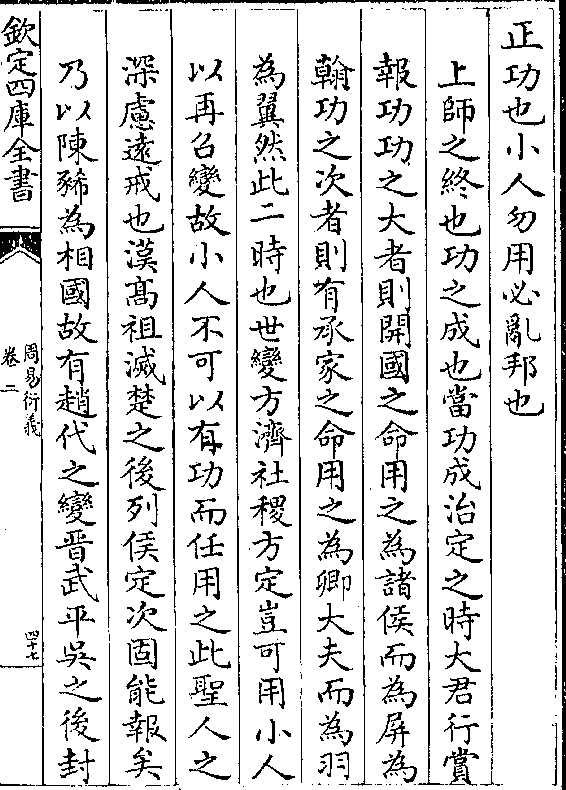 正功也小人勿用必亂邦也
上師之終也功之成也當功成治定之時大君行賞
報功功之大者則開國之命用之為諸侯而為屏為
翰功之次者則有承家之命用之為卿大夫而為羽
為翼然此二時也世變方濟社稷方定豈可用小人
以再召變故小人不可以有功而任用之此聖人之
深慮遠戒也漢髙祖滅楚之後列侯定次固能報矣
乃以陳豨為相國故有趙代之變晉武平吳之後封
欽定四庫全書
周易衍義
卷二
四十七